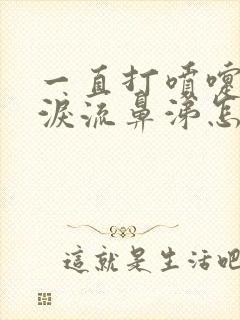 一直打噴嚏
淚流鼻涕怎
這就是生活吧